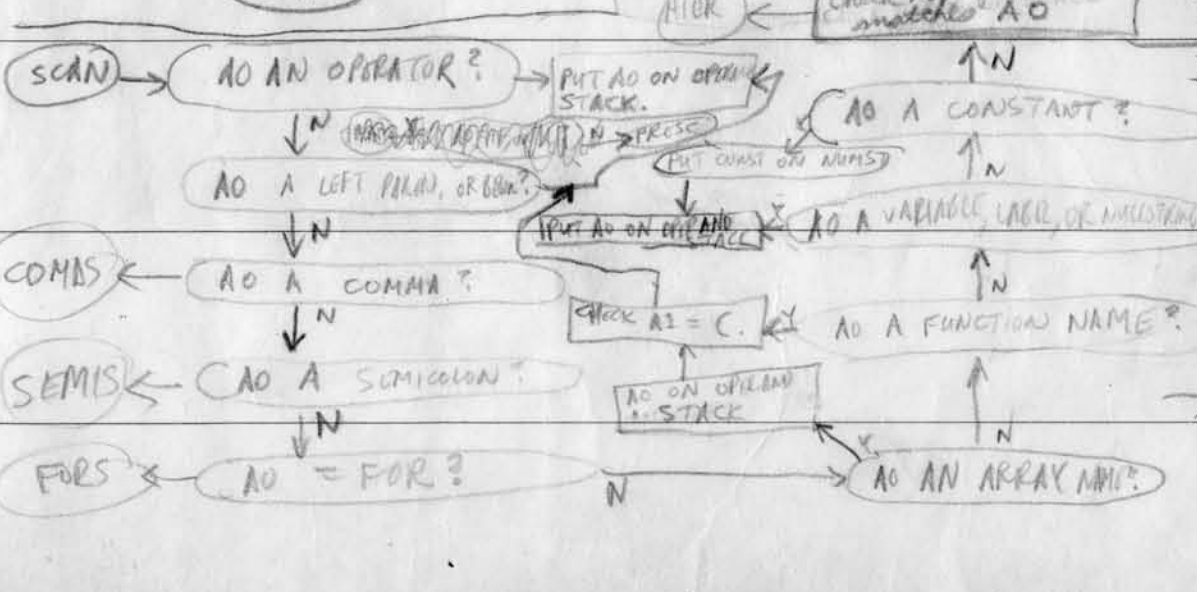 HIER
matches AO
SCAN
AO AN OPERATOR?
PUT AO ON
STACK.
N
N
AO A CONSTANT?
N
PRESC
PUT CONST ON
N
AO A LEFT PAREN, OR
N
PUT AO ON OPERAND
STACK
Y
AO A VARIABLE, LABEL, OR NULLSTRING
COMAS
AO A COMMA?
N
N
CHECK A1 = C.
Y
AO A FUNCTION NAME?
SEMIS
AO A SEMICOLON?
AO ON OPERAND
STACK
N
N
Y
FORS
AO = FOR?
N
AO AN ARRAY NAME?